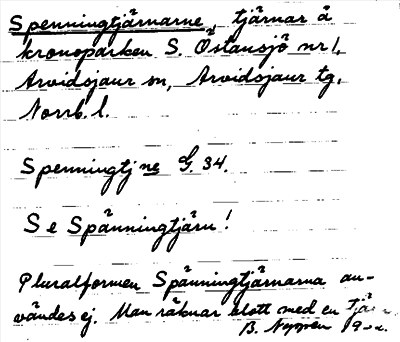 Spenningtjärnarne, tjärnar å
kronoparken S. Östansjö nr 1,
Arvidsjaur sn, Arvidsjaur tg,
Norrb. l.
Spenningtjne G. 34.
Se Spänningtjärn!
Pluralformen Spänningtjärnarna an-
vändes ej. Man räknar blott med en tjärn
B.